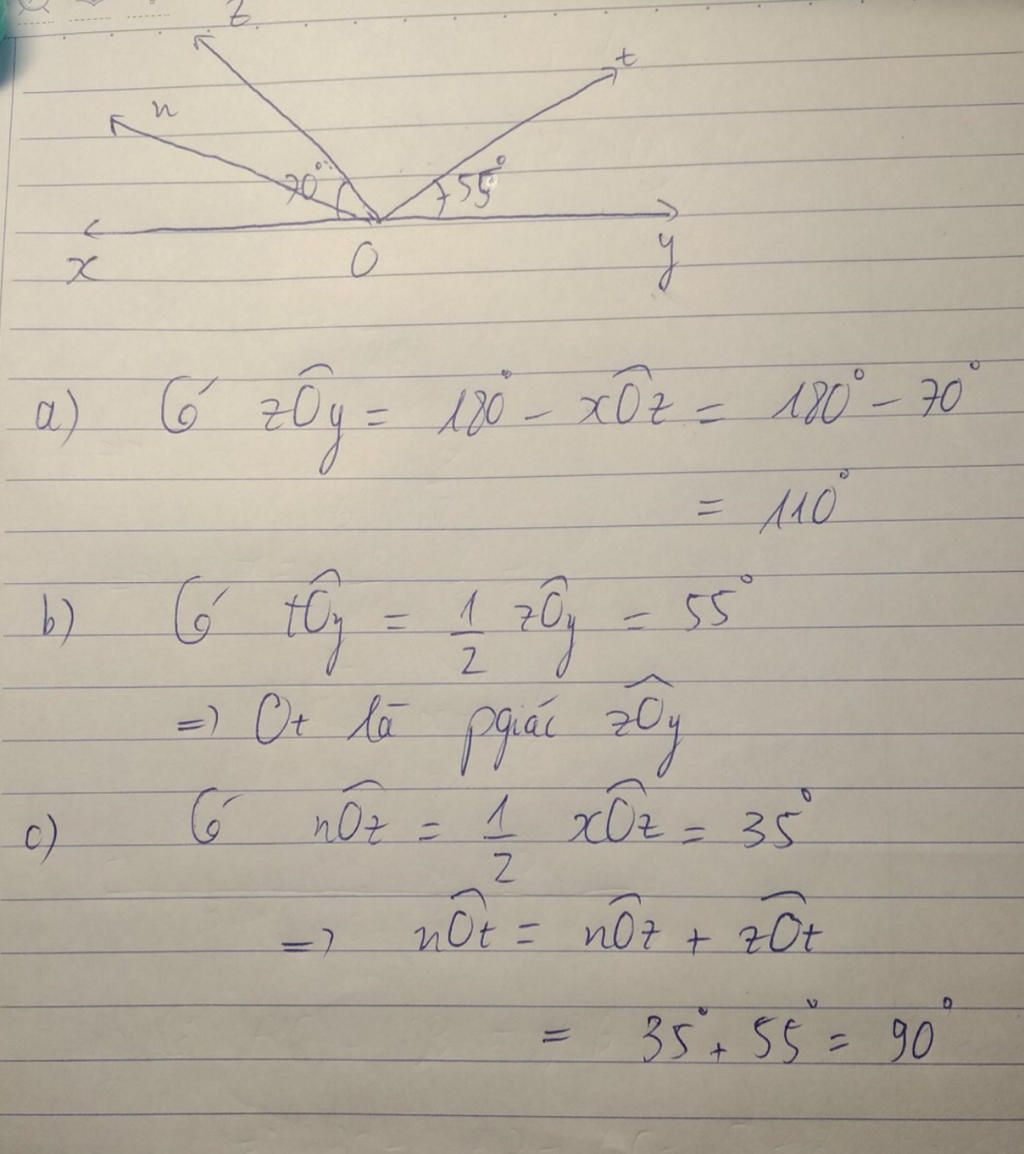 z
t
n
70°
55°
x
O
y
a) Có zÔy = 180° - xÔz = 180° - 70°
= 110°
b) Có tÔy = 1/2 zÔy = 55°
=> Ot là pgiác zÔy
c) Có nÔz = 1/2 xÔz = 35°
=> nÔt = nÔz + zÔt
= 35° + 55° = 90°